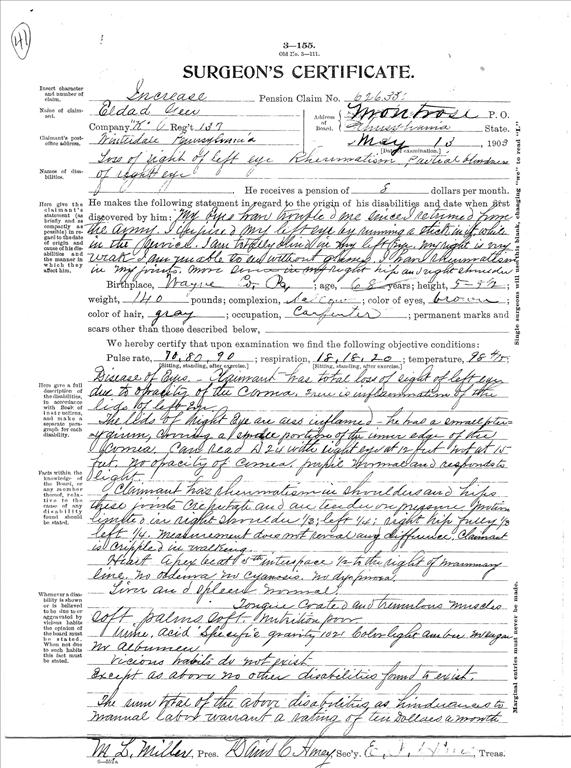 41
3—155.
Old No. 3—111.
SURGEON'S CERTIFICATE.
Insert character and number of claim.
Increase Pension Claim No. 62638
Name of claimant.
Eldad
Address of Board.
Montrose P. O.
Company "K" Reg't 137
Pennsylvania State.
Claimant's post-office address.
Pennsylvania
May 13 1903
[Date of examination.]
Names of disabilities.
Loss of sight of left eye Rheumatism Partial blindness
of right eye
He receives a pension of 8 dollars per month.
Here give the claimant's statement (as briefly and as compactly as possible) in regard to the date of origin and cause of his disabilities and the manner in which they affect him.
He makes the following statement in regard to the origin of his disabilities and date when first
discovered by him: My eyes have troubled me since I returned from
the Army. I injured my left eye by running a stick in it while
in the service. I am totally blind in my left eye. My right is very
weak I am unable to see without glasses. I have rheumatism
in my joints. more in my right hip and right shoulder
Birthplace, Wayne Co. Pa; age, 68 years; height, 5-5½;
weight, 140 pounds; complexion, ; color of eyes, brown;
color of hair, gray; occupation, Carpenter; permanent marks and
scars other than those described below,
We hereby certify that upon examination we find the following objective conditions:
Pulse rate, 70, 80, 90; respiration, 18, 18, 20; temperature, 98
[Sitting, standing, after exercise.] [Sitting, standing, after exercise.]
Here give a full description of the disabilities, in accordance with Book of instructions, and make a separate paragraph for each disability.
Disease of Eyes. Claimant has total loss of sight of left eye
due to opacity of the Cornea. There is inflammation of the
lids of left Eye
The lids of Right Eye are also inflamed - he has a small pter-
ygium, covering a small portion of the inner edge of the
Cornea. Can read D 24 with right eye at 12 feet not at 15
feet. No opacity of Cornea. pupil normal and responds to
light.
Facts within the knowledge of the Board, or any member thereof, relative to the cause of any disability found should be stated.
Claimant has rheumatism in shoulders and hips
these joints Crepitate and are tender on pressure Motion
limited in right shoulder 1/3; left 1/4; right hip fully 1/3
left 1/4. Measurement does not reveal any difference. Claimant
is crippled in walking.
Heart Apex beat 5th interspace 1/2 to the right of mammary
line. No oedema No cyanosis. No dyspnoea.
Liver and Spleen normal.
Whenever a disability is shown or is believed to be due to or aggravated by vicious habits the opinion of the board must be stated. When not due to such habits this fact must be stated.
Tongue Coated and tremulous muscles
soft. palms soft. Nutrition poor.
Urine, acid Specific gravity 1021 Color light amber No sugar
No albumen
Vicious habits do not exist.
Except as above no other disabilities found to exist.
The sum total of the above disabilities as hindrances to
manual labor warrant a rating of ten Dollars a month
M. L. Miller, Pres. David C. Sec'y. Treas.
Single surgeons will use this blank, changing "we" to read "I."
Marginal entries must never be made.